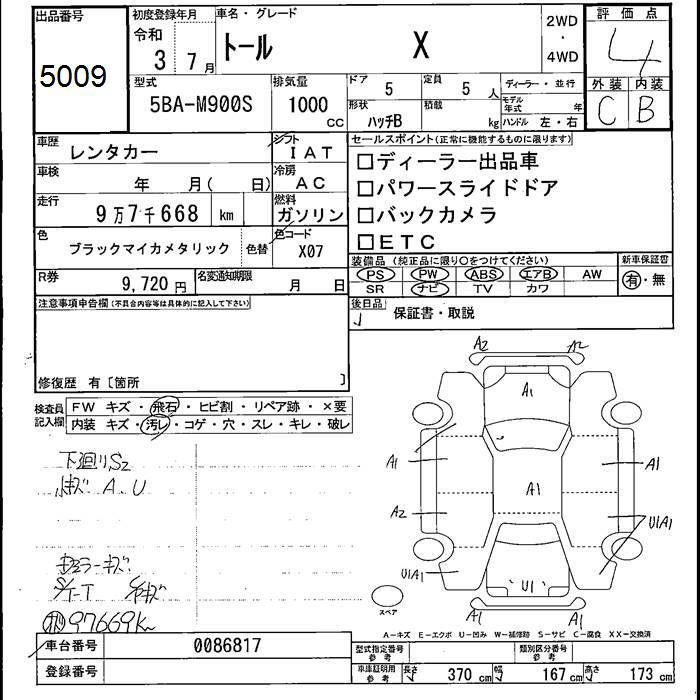 出品番号
5009
初度登録年月
令和
3 7月
車名・グレード
トール X
2WD
・
4WD
評価点
4
外装 内装
C B
型式
5BA-M900S
排気量
1000
CC
ドア
5
定員
5 人
ディーラー・並行
形状
ハッチB
積載
kg
モデル年式 年
ハンドル 左・右
車歴
レンタカー
シフト
IAT
車検
年 月( 日)
冷房
AC
走行
9万7千668 km
燃料
ガソリン
色
ブラックマイカメタリック
色替
色コード
X07
R券
9,720 円
名変通知期限
月 日
セールスポイント(正常に機能するものに限ります)
□ディーラー出品車
□パワースライドドア
□バックカメラ
□ETC
装備品 (純正品に限り○をつけてください)
PS PW ABS エアB AW
SR ナビ TV カワ
新車保証書
有・無
後日品
保証書・取説
注意事項申告欄(不具合内容等は具体的に記入して下さい)
修復歴 有〔箇所 〕
検査員記入欄
FW キズ・飛石・ヒビ割・リペア跡・×要
内装 キズ・汚レ・コゲ・穴・スレ・キレ・破レ
下廻りS2
小キズ A.U
97669K
A2
A1
A1
A1
A1
A2
A1
U1A1
U1A1
U1
A1
A1
スペア
A-キズ E-エクボ U-凹み W-補修跡 S-サビ C-腐食 XX-交換済
車台番号
0086817
登録番号
型式指定番号
参考
類別区分番号
参考
車庫証明用
参考
長さ
370 cm
幅
167 cm
高さ
173 cm